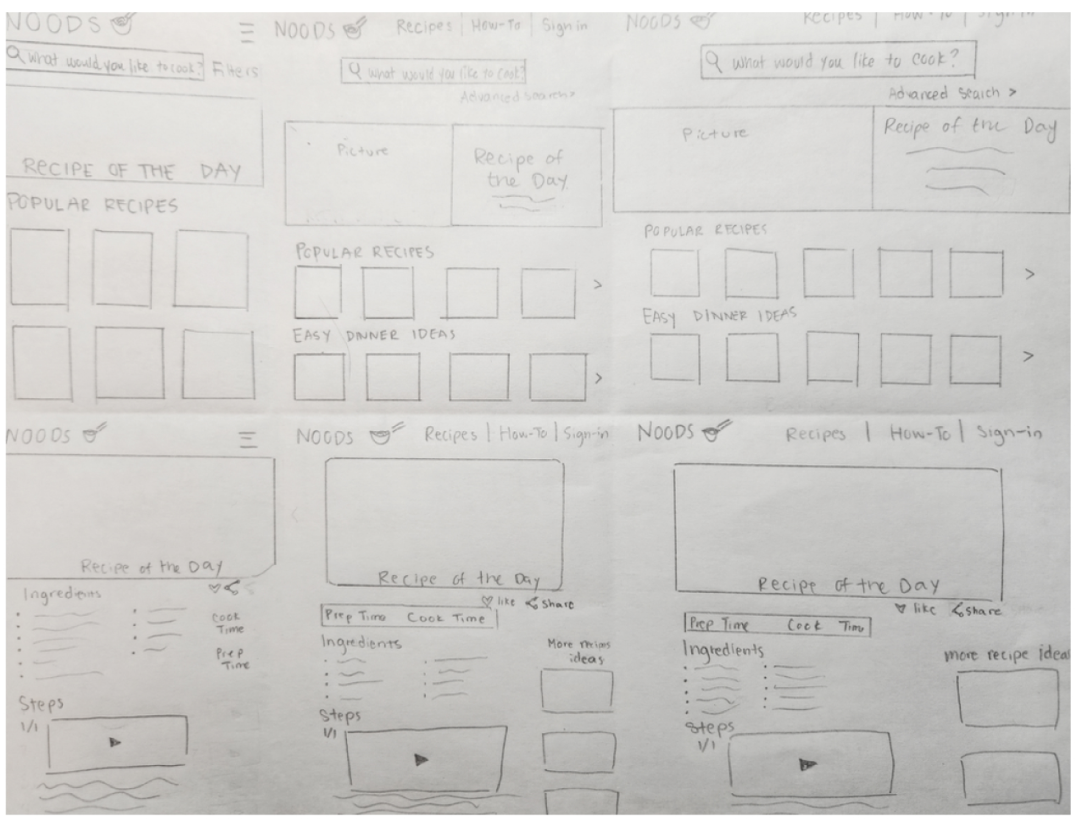 NOODS
What would you like to cook?
Filters
RECIPE OF THE DAY
POPULAR RECIPES
NOODS
Recipes | How-To | Sign in
What would you like to cook?
Advanced search >
Picture
Recipe of
the Day
POPULAR RECIPES
>
EASY DINNER IDEAS
>
NOODS
Recipes | How-To | Sign-in
What would you like to cook?
Advanced search >
Picture
Recipe of the Day
POPULAR RECIPES
>
EASY DINNER IDEAS
>
NOODS
Recipe of the Day
Ingredients
Cook
Time
Prep
Time
Steps
1/1
NOODS
Recipes | How-To | Sign-in
Recipe of the Day
like share
Prep Time Cook Time
Ingredients
More
ideas
Steps
1/1
NOODS
Recipes | How-To | Sign-in
Recipe of the Day
like share
Prep Time Cook Time
Ingredients
more recipe ideas
Steps
1/1